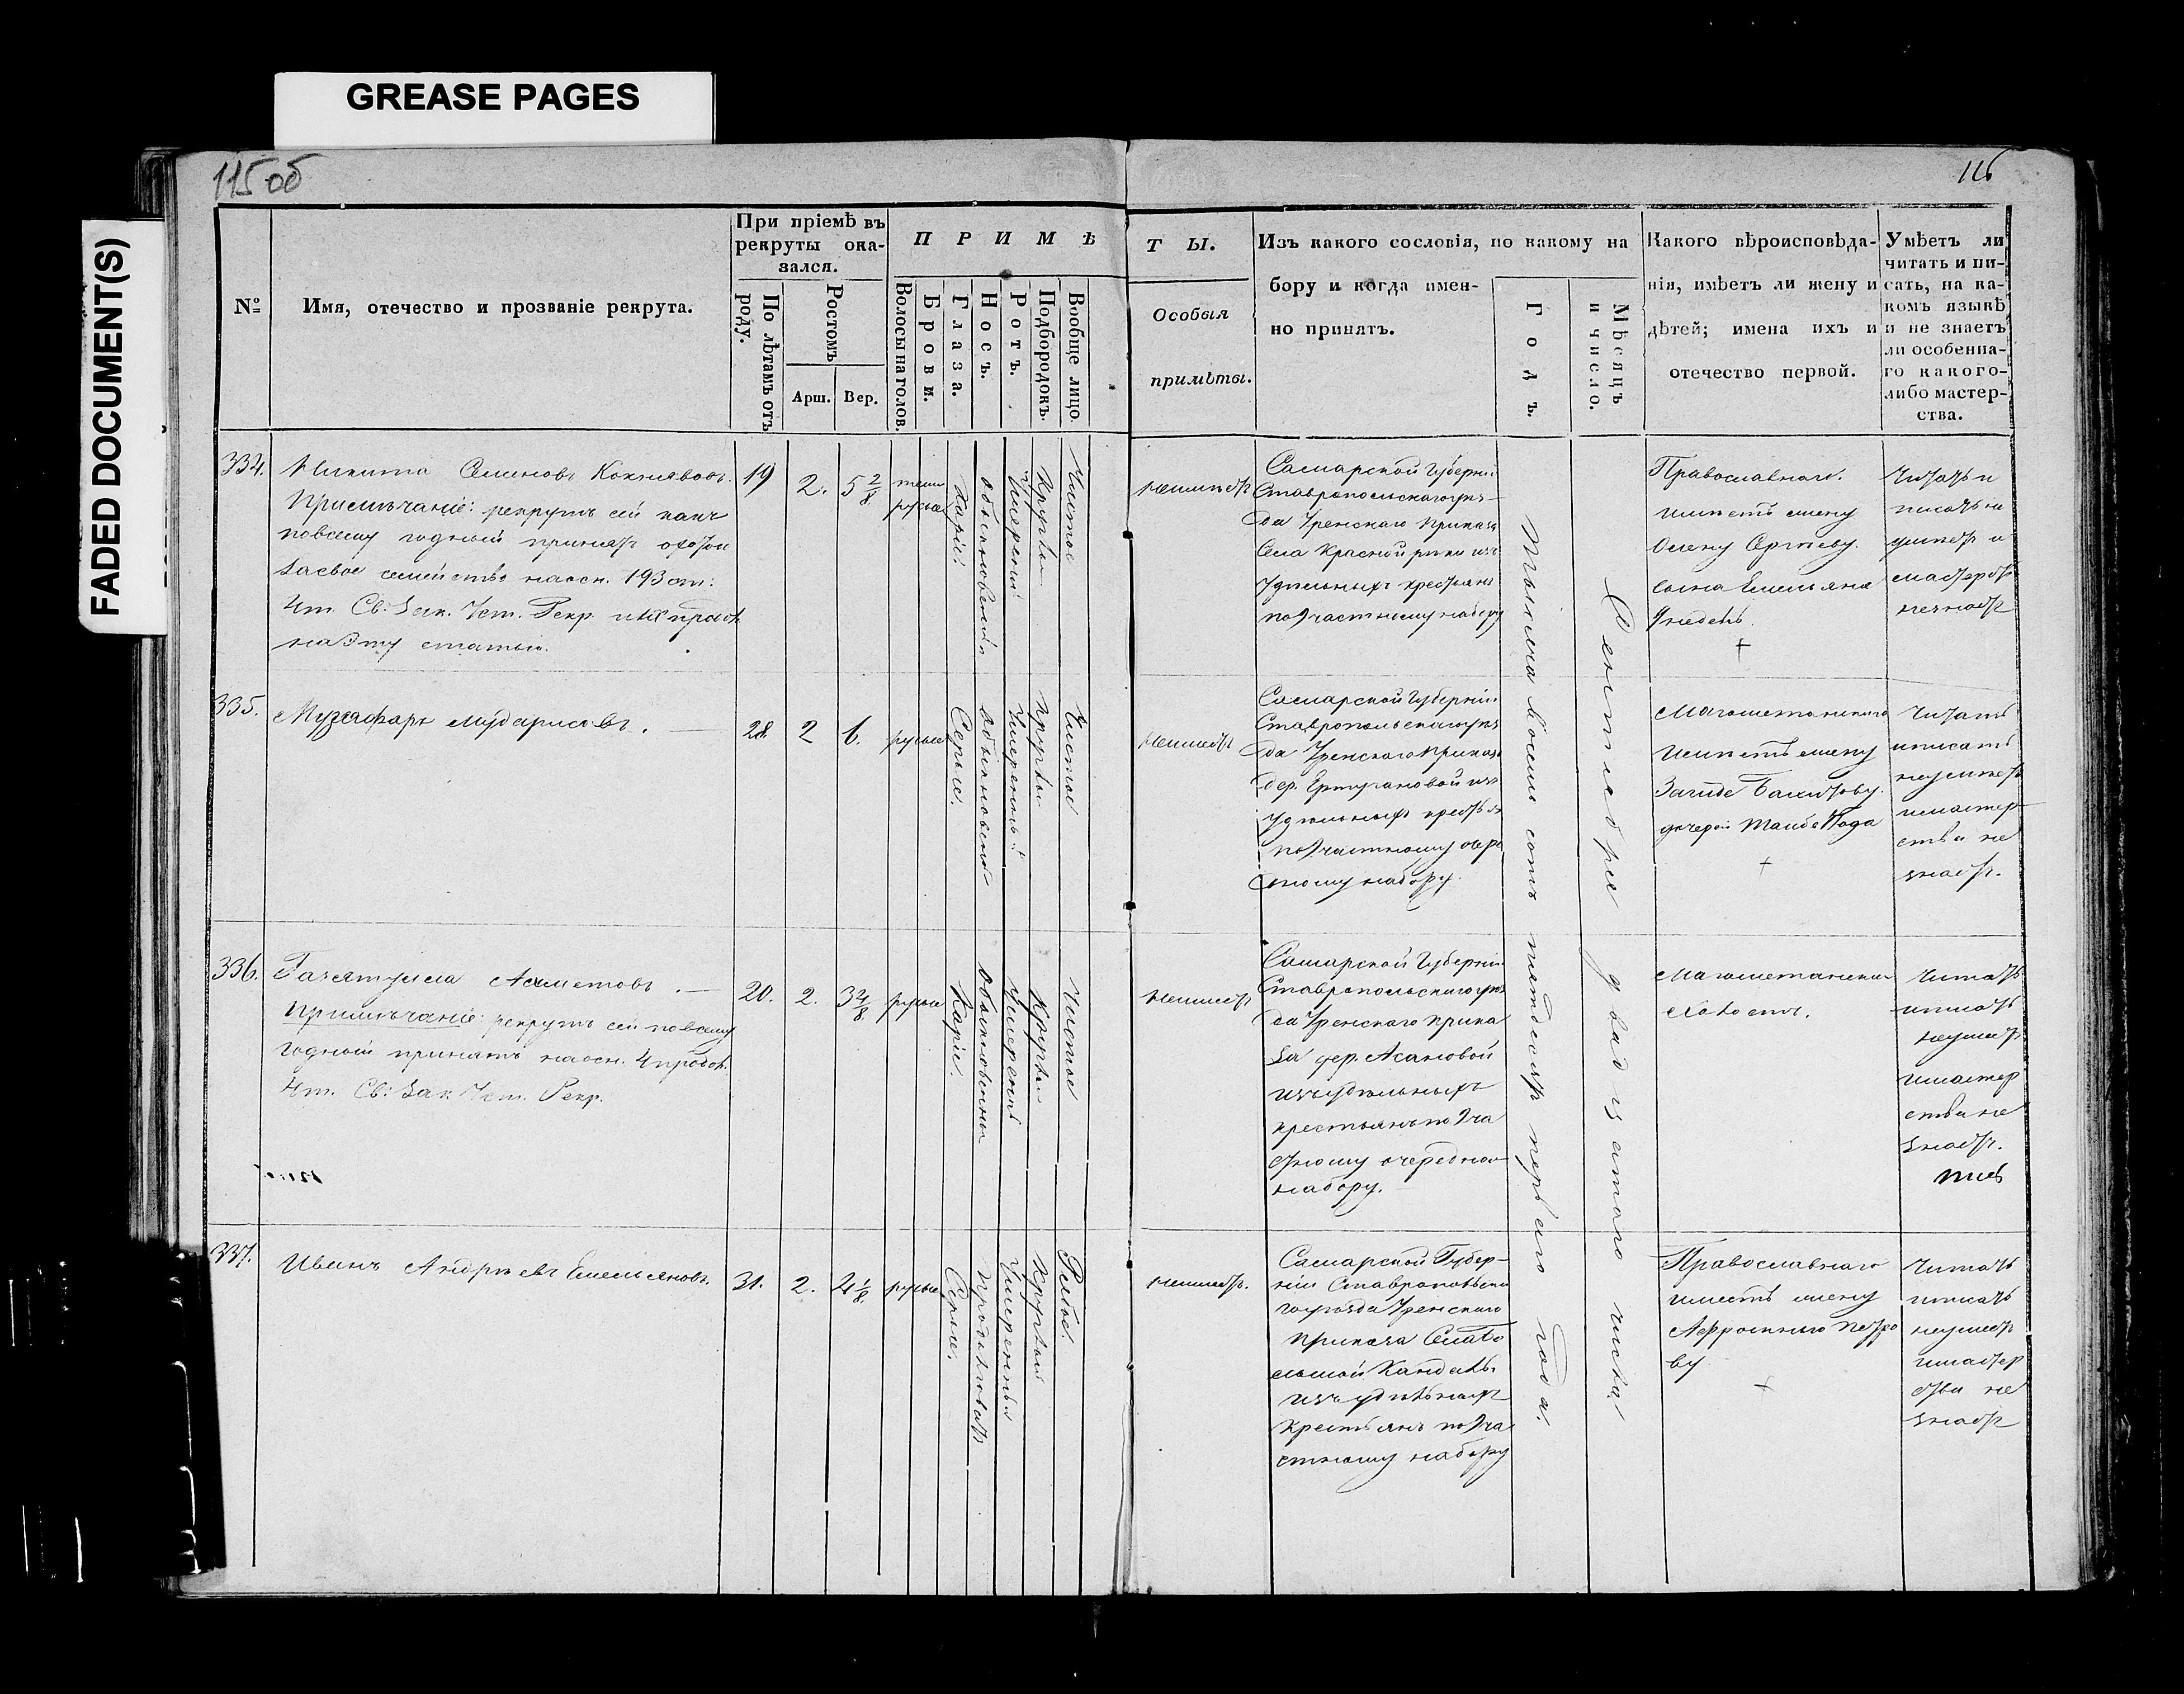 GREASE PAGES
FADED DOCUMENT(S)
115 об
116
№
Имя, отечество и прозваніе рекрута.
При пріемѣ въ
рекруты ока-
зался.
По лѣтамъ отъ
роду.
Ростомъ
Арш.
Вер.
П Р И М Ѣ
Волосы на голов.
Брови.
Глаза.
Носъ.
Ротъ.
Подбородокъ.
Вообще лицо.
Т Ы.
Особыя
примѣты.
Изъ какого сословія, по какому на
бору и когда имен-
но принятъ.
Годъ.
Мѣсяцъ
и число.
Какого вѣроисповѣда-
нія, имѣетъ ли жену и
дѣтей; имена ихъ и
отечество первой.
Умѣетъ ли
читать и пи-
сать, на ка-
комъ языкѣ
и не знаетъ
ли особенна-
го какого-
либо мастер-
ства.
334.
Никита Семеновъ
Примѣчаніе: рекрутъ сей какъ
повсему годный принятъ охотой
за свое семейство на осн. 193 ст.
4 т. Св: Зак. Уст. Рекр.
на эту статью.
19
2.
5 2/8
темно
русые
Каріе.
обыкновенный
умеренный
круглый
Чистое
неимѣетъ
Самарской Губерніи
Ставропольскаго уѣз-
да Уренскаго Приказа
Села Красной рѣки изъ
Удѣльныхъ крестьянъ
по участному набору
Православнаго.
имѣетъ жену
Олену Сергѣеву.
сына Емельяна
9 недѣль.
+
Читать и
писать не
умѣетъ и
мастерств
незнаетъ
335.
Музафаръ Мударисовъ.
28.
2
6.
русые
Серые.
обыкновенный
умеренный
круглый
Чистое
неимѣетъ
Самарской Губерніи
Ставропольскаго уѣз
да Уренскаго Приказа
дер. Ертугановой изъ
удѣльныхъ крестья
по участному очере
дному набору.
Магометанскаго
имѣетъ жену
дочерей
+
Читать
и писать
не умѣетъ
и мастер
ства не
знаетъ.
336.
Ахметовъ.
Примѣчаніе: рекрутъ сей повсему
годный принятъ на осн. 4 продол.
4 т. Св: Зак. Уст. Рекр.
20.
2.
русые
Каріе.
обыкновенный
умеренный
круглый
Чистое
неимѣетъ
Самарской Губерніи
Ставропольскаго уѣз
да Уренскаго прика
за дер. Асановой
изъ удѣльныхъ
крестьянъ по уча
стному очередном
набору.
Магометанскаго
Холостъ.
Читать
и писать
неумѣетъ
и мастер
ства не
знаетъ.
337.
Иванъ Андрѣевъ Емельяновъ.
31.
2.
4 1/8.
русые
Серые.
продолговатъ
умеренный
круглый
Рябое.
неимѣетъ.
Самарской Губер-
ніи Ставропольска
го уѣзда Уренскаго
приказа Села
Кандалы
изъ удѣльныхъ
Крестьянъ по уча
стному набору
Православнаго
имѣетъ жену
Афросинью Петро
ву
+
Читать
и писать
неумѣетъ
и мастер
ства не
знаетъ
Тысяча восемь сотъ пятдесятъ перваго года.
Сентября двадцатаго числа.